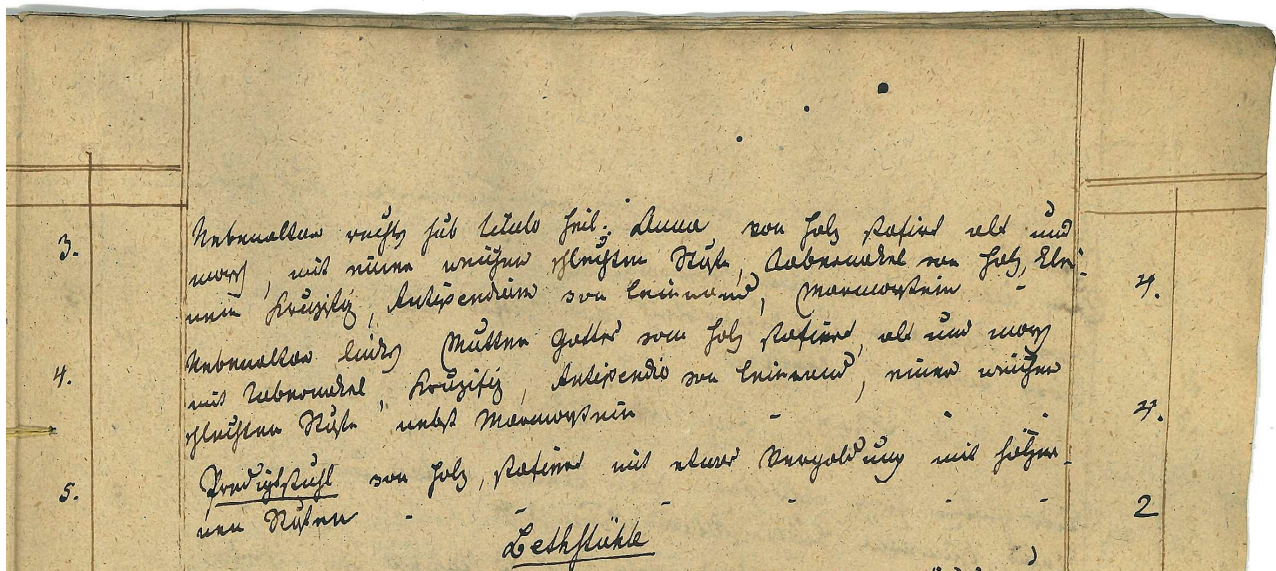 3. Nebenaltar rechts sub titulo heil: Anna von Holz stafirt alt und
morsch, mit einer weichen schlechten Stufe, Tabernakel von Holz, klei-
nem Kruzifix, Antipendium von Leinwand, Marmorstein - 4.
4. Nebenaltar links Mutter Gottes vom Holz stafirt, alt und morsch
mit Tabernakel, Kruzifix, Antipendio von Leinwand, einer weichen
schlechten Stufe nebst Marmorstein - - - 3.
5. Predigtstuhl von Holz, stafirt mit etwas Vergoldung mit hölzer-
nen Stufen - - - - - 2
Bethstühle